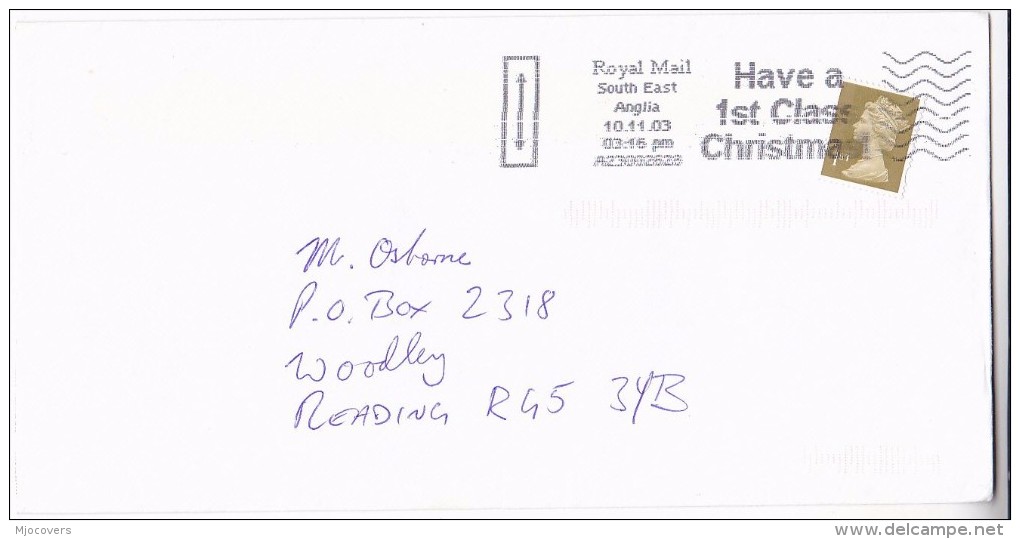 Royal Mail
South East
Anglia
10.11.03
03:16 pm
Have a
1st Class
Christma
M. Osborne
P.O. Box 2318
Woodley
READING RG5 3YB
Mjocovers
www.delcampe.net